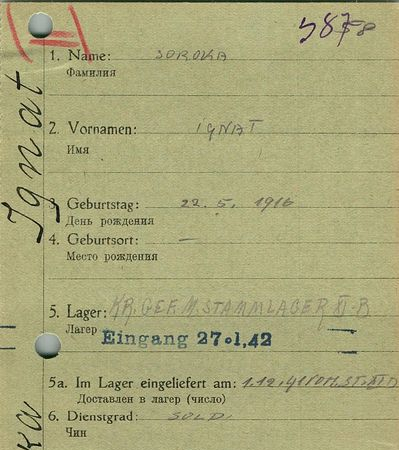 5878
1. Name: SOROKA
Фамилия
Ignat
2. Vornamen: IGNAT
Имя
3. Geburtstag: 22. 5. 1916
День рождения
4. Geburtsort: —
Место рождения
5. Lager: KR. GEF. M. STAMMLAGER XI-B
Лагер
Eingang 27.1.42
5a. Im Lager eingeliefert am: 1.12.41 VOM. ST.
Доставлен в лагер (число)
6. Dienstgrad: SOLD.
Чин
ka